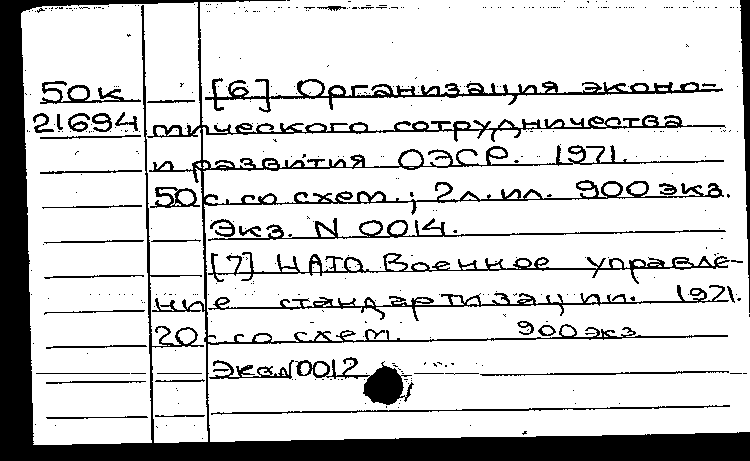 50к [6] Организация эконо-
21694 мического сотрудничества
и развития ОЭСР. 1971.
50 с. со схем.; 2 л. ил. 900 экз.
Экз. N 0014.
[7] НАТО. Военное управле-
ние стандартизации. 1971.
20 с. со схем. 900 экз
Экз. N 0012